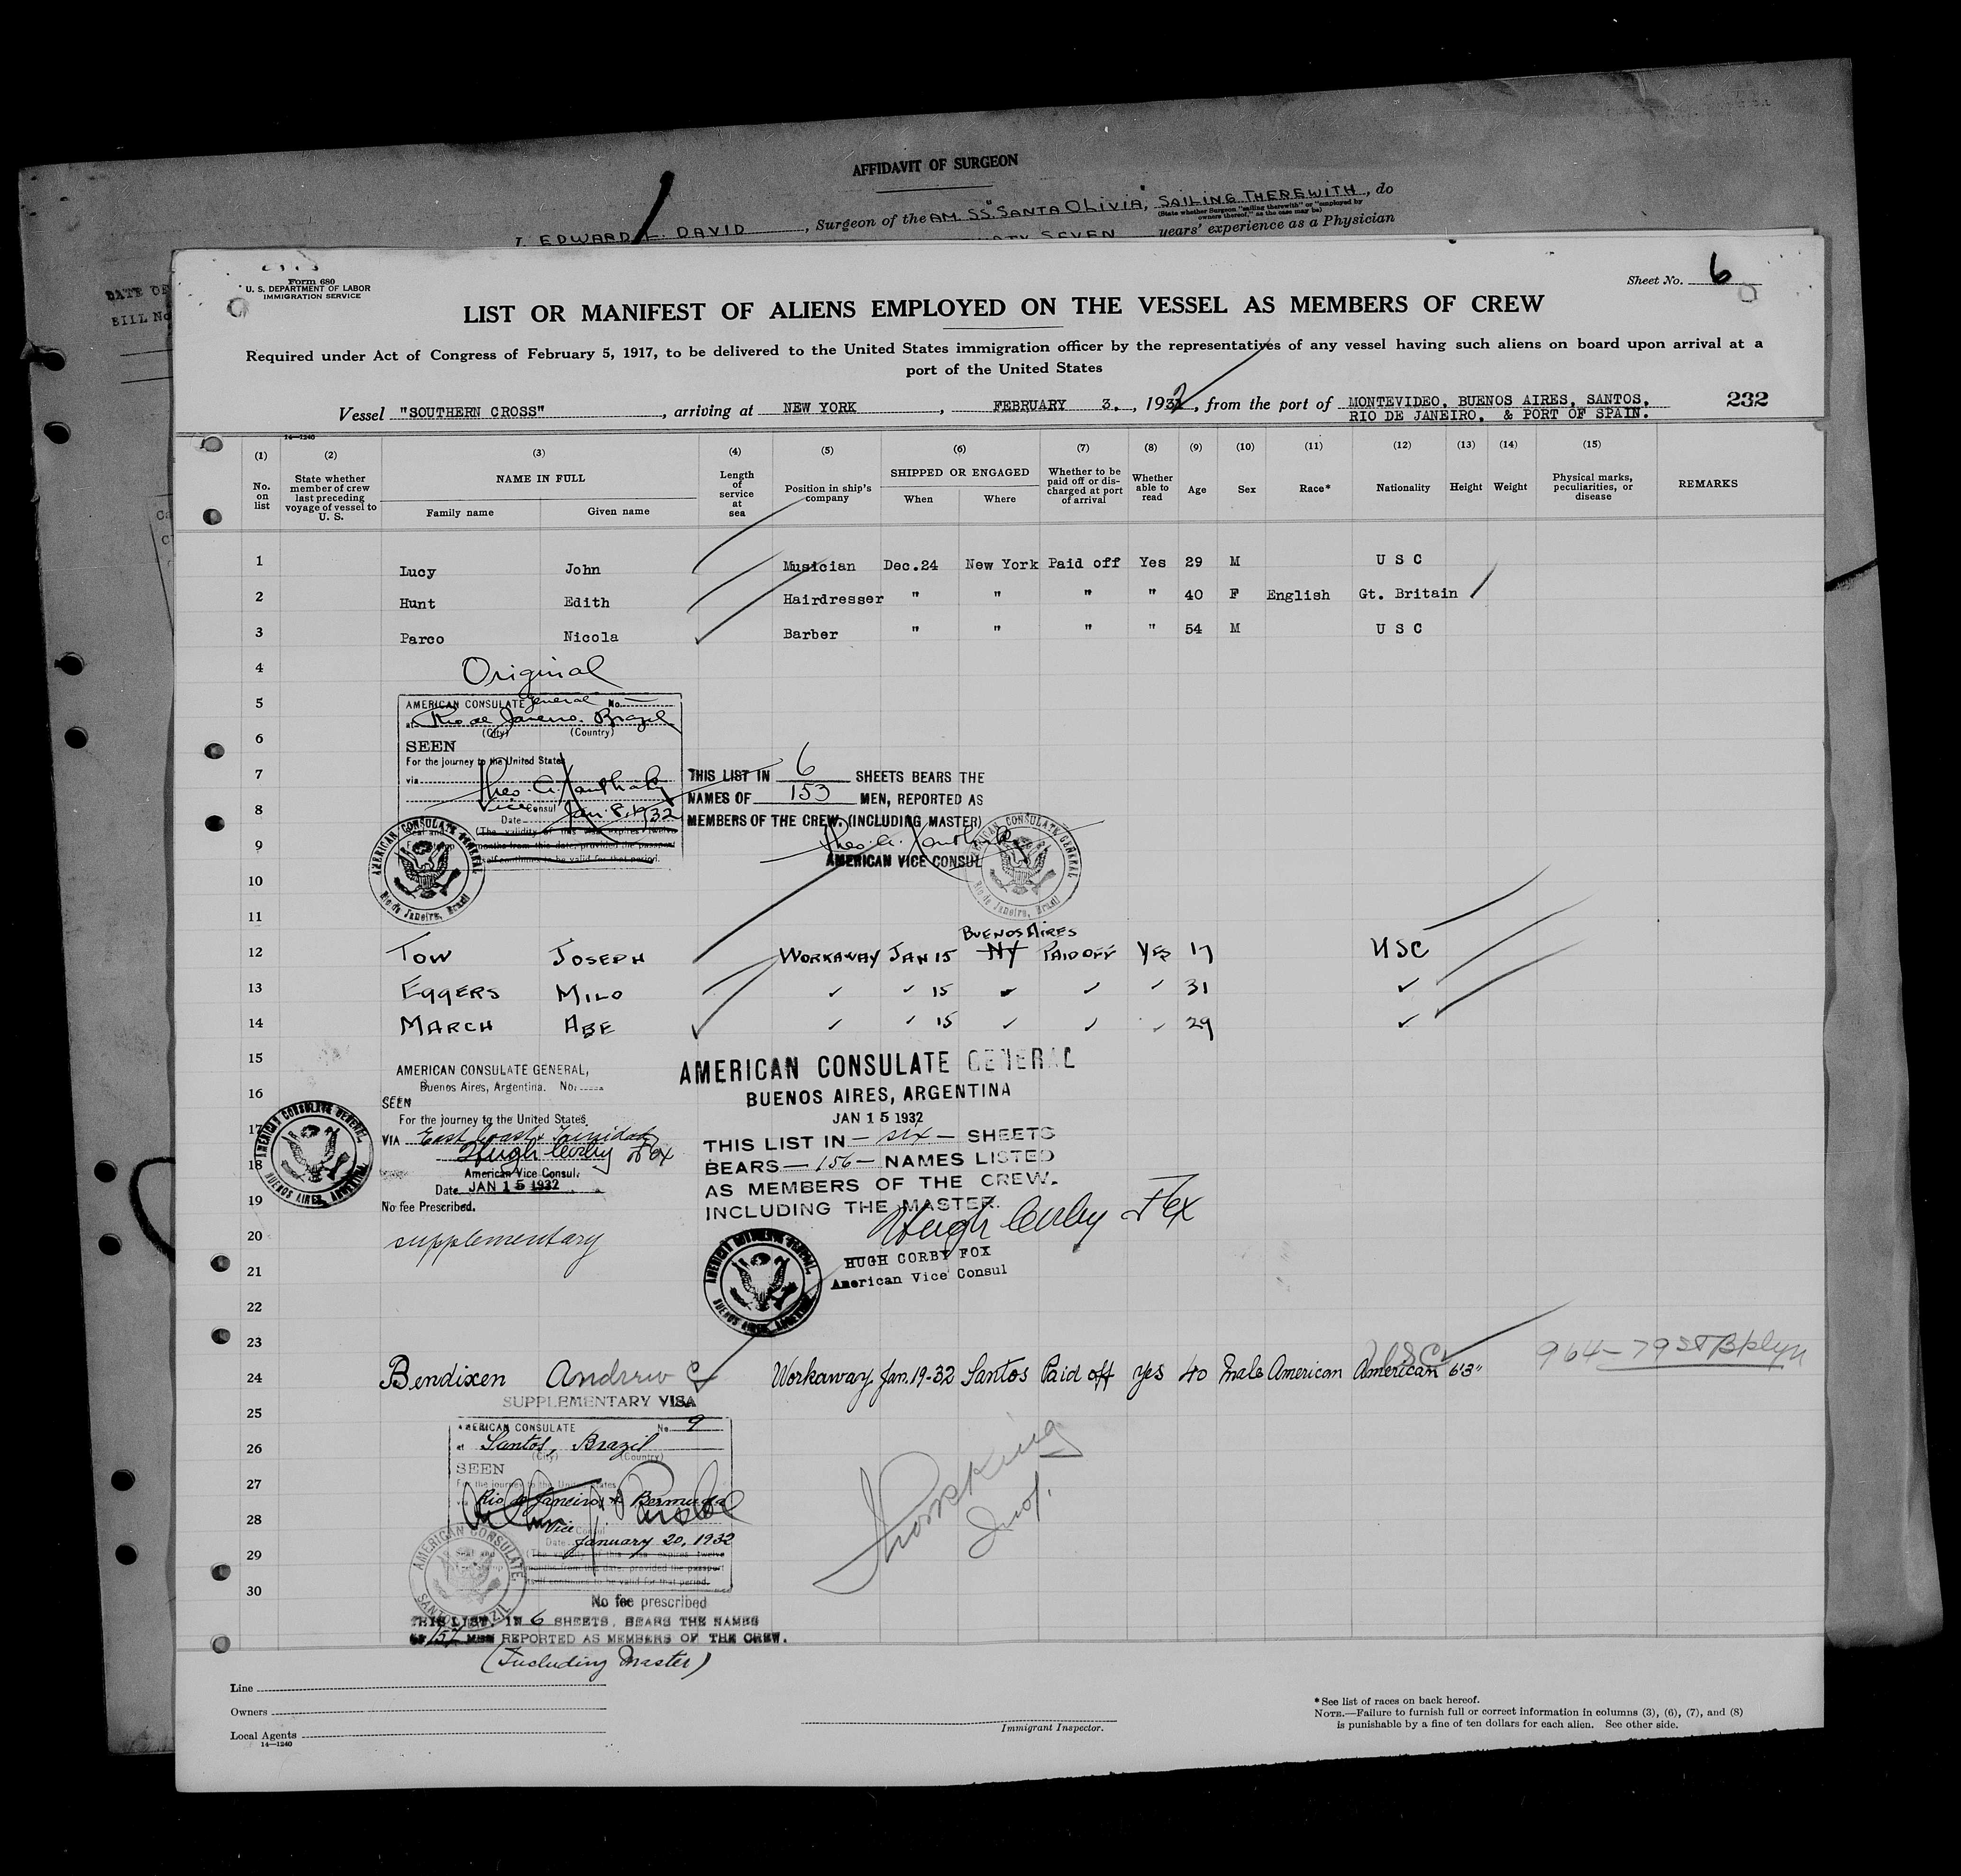 AFFIDAVIT OF SURGEON
I, EDWARD L. DAVID, Surgeon of the AM. SS. "SANTA OLIVIA", SAILING THEREWITH, do
(State whether Surgeon "sailing therewith" or "employed by owners thereof," as the case may be)
SEVEN years' experience as a Physician
DATE OF
BILL No
Form 680
U. S. DEPARTMENT OF LABOR
IMMIGRATION SERVICE
Sheet No. 6
LIST OR MANIFEST OF ALIENS EMPLOYED ON THE VESSEL AS MEMBERS OF CREW
Required under Act of Congress of February 5, 1917, to be delivered to the United States immigration officer by the representatives of any vessel having such aliens on board upon arrival at a
port of the United States
Vessel "SOUTHERN CROSS", arriving at NEW YORK, FEBRUARY 3., 1932, from the port of MONTEVIDEO, BUENOS AIRES, SANTOS,
RIO DE JANEIRO, & PORT OF SPAIN.
232
14—1240
(1) (2) (3) (4) (5) (6) (7) (8) (9) (10) (11) (12) (13) (14) (15)
No. on list
State whether member of crew last preceding voyage of vessel to U. S.
NAME IN FULL
Family name Given name
Length of service at sea
Position in ship's company
SHIPPED OR ENGAGED
When Where
Whether to be paid off or discharged at port of arrival
Whether able to read
Age Sex Race* Nationality Height Weight
Physical marks, peculiarities, or disease
REMARKS
1 Lucy John Musician Dec.24 New York Paid off Yes 29 M U S C
2 Hunt Edith Hairdresser " " " " 40 F English Gt. Britain
3 Parco Nicola Barber " " " " 54 M U S C
4 Original
5 AMERICAN CONSULATE General No.
at Rio de Janeiro. Brazil
(City) (Country)
6 SEEN
For the journey to the United States
7 via
Theo. A. Xanthaky
8 Vice Consul
Date Jan. 8, 1932
9 (The validity of this visa expires twelve
months from this date, provided the passport
itself continues to be valid for that period.
AMERICAN CONSULATE GENERAL
Rio de Janeiro, Brasil
10
11
THIS LIST IN 6 SHEETS BEARS THE
NAMES OF 153 MEN, REPORTED AS
MEMBERS OF THE CREW. (INCLUDING MASTER)
Theo. A. Xanthaky
AMERICAN VICE CONSUL
AMERICAN CONSULATE GENERAL
Rio de Janeiro, Brasil
BUENOS AIRES
12 TOW JOSEPH WORKAWAY JAN 15 NY PAID OFF YES 17 USC
13 EGGERS MILO ✓ ✓ 15 ✓ ✓ ✓ 31 ✓
14 MARCH ABE ✓ ✓ 15 ✓ ✓ ✓ 29 ✓
15 AMERICAN CONSULATE GENERAL,
Buenos Aires, Argentina. No:
16 SEEN
For the journey to the United States
17 VIA East Coast & Trinidad
Hugh Corby Fox
18 American Vice Consul.
Date JAN 15 1932
19 No fee Prescribed.
20 supplementary
AMERICAN CONSULATE GENERAL,
BUENOS AIRES, ARGENTINA
AMERICAN CONSULATE GENERAL
BUENOS AIRES, ARGENTINA
JAN 15 1932
THIS LIST IN — six — SHEETS
BEARS — 156 — NAMES LISTED
AS MEMBERS OF THE CREW.
INCLUDING THE MASTER.
Hugh Corby Fox
HUGH CORBY FOX
American Vice Consul
AMERICAN CONSULATE GENERAL,
BUENOS AIRES, ARGENTINA
21
22
23 USC 964-79 ST Bklyn
24 Bendixen Andrew C Workaway Jan. 19-32 Santos Paid off yes 40 Male American American 6'3"
SUPPLEMENTARY VISA
25 AMERICAN CONSULATE No. 9
26 at Santos, Brazil
(City) (Country)
SEEN
27 For the journey to the United States
via Rio de Janeiro & Bermuda
28 Vice Consul
Date January 20, 1932
29 (The validity of this visa expires twelve
months from this date, provided the passport
30 itself continues to be valid for that period.
AMERICAN CONSULATE
SANTOS, BRAZIL
No fee prescribed
THIS LIST, IN 6 SHEETS, BEARS THE NAMES
OF 157 MEN REPORTED AS MEMBERS OF THE CREW.
(Including Master)
Line
Owners
Local Agents
14—1240
Immigrant Inspector.
* See list of races on back hereof.
NOTE.—Failure to furnish full or correct information in columns (3), (6), (7), and (8)
is punishable by a fine of ten dollars for each alien. See other side.